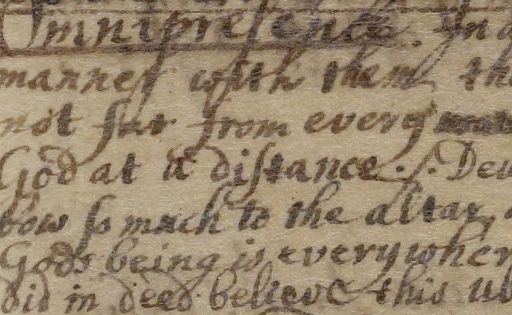 Omnipresence. In a
manner with them th
not far from every
God at a distance. Deu
bow so much to the altar,
Gods being is everywher
did in deed believe this ub